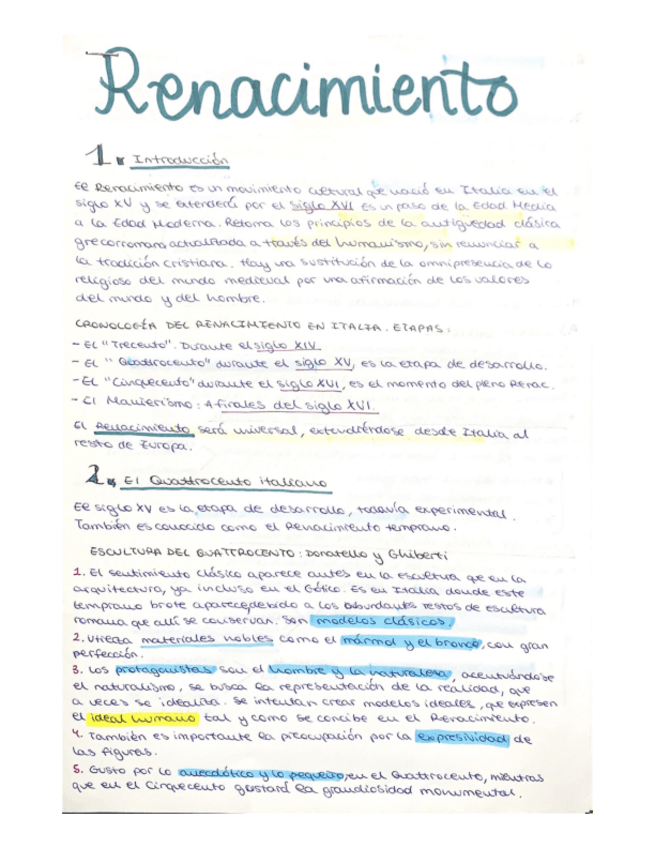 Renacimiento
1. Introducción
El Renacimiento es un movimiento cultural que nació en Italia en el
siglo XV y se extenderá por el siglo XVI es un paso de la Edad Media
a la Edad Moderna. Retoma los principios de la antigüedad clásica
grecorromana actualizada a través del humanismo, sin renunciar a
la tradición cristiana. Hay una sustitución de la omnipresencia de lo
religioso del mundo medieval por una afirmación de los valores
del mundo y del hombre.
CRONOLOGÍA DEL RENACIMIENTO EN ITALIA. ETAPAS:
- El "Trecento". Durante el siglo XIV.
- El "Quattrocento" durante el siglo XV, es la etapa de desarrollo.
- El "Cinquecento" durante el siglo XVI, es el momento del pleno Renac.
- El Manierismo: A finales del siglo XVI.
El Renacimiento será universal, extendiéndose desde Italia al
resto de Europa.
2. El Quattrocento italiano
El siglo XV es la etapa de desarrollo, todavía experimental.
También es conocido como el Renacimiento temprano.
ESCULTURA DEL QUATTROCENTO: Donatello y Ghiberti
1. El sentimiento clásico aparece antes en la escultura que en la
arquitectura, ya incluso en el Gótico. Es en Italia donde este
temprano brote aparece debido a los abundantes restos de escultura
romana que allí se conservan. Son modelos clásicos.
2. Utiliza materiales nobles como el mármol y el bronce, con gran
perfección.
3. Los protagonistas son el hombre y la naturaleza, acentuándose
el naturalismo, se busca la representación de la realidad, que
a veces se idealiza. Se intentan crear modelos ideales, que expresen
el ideal humano tal y como se concibe en el Renacimiento.
4. También es importante la preocupación por la expresividad de
las figuras.
5. Gusto por lo anecdótico y lo pequeño, en el Quattrocento, mientras
que en el Cinquecento gustará la grandiosidad monumental.